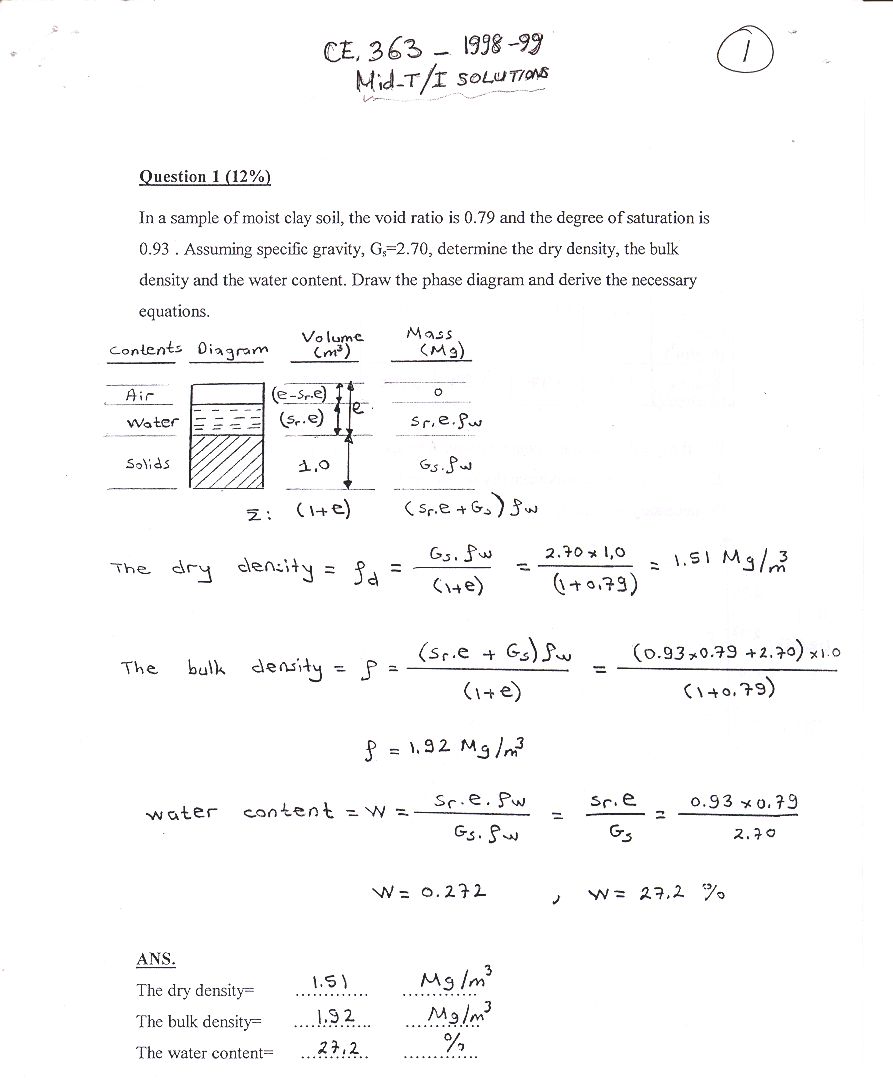 CE. 363 – 1998-99
1
Mid-T/I SOLUTIONS
Question 1 (12%)
In a sample of moist clay soil, the void ratio is 0.79 and the degree of saturation is
0.93 . Assuming specific gravity, Gs=2.70, determine the dry density, the bulk
density and the water content. Draw the phase diagram and derive the necessary
equations.
Contents Diagram Volume (m³) Mass (Mg)
Air (e-Sr.e) 0
e
Water (Sr.e) Sr.e.ρw
Solids 1.0 Gs.ρw
Σ: (1+e) (Sr.e + Gs) ρw
The dry density = ρd = Gs.ρw / (1+e) = 2.70 × 1,0 / (1+0.79) = 1.51 Mg/m³
The bulk density = ρ = (Sr.e + Gs) ρw / (1+e) = (0.93×0.79 + 2.70) ×1.0 / (1+0.79)
ρ = 1.92 Mg/m³
water content = W = Sr.e.ρw / Gs.ρw = Sr.e / Gs = 0.93 × 0.79 / 2.70
W = 0.272 , W = 27.2 %
ANS.
The dry density= 1.51 Mg/m³
The bulk density= 1.92 Mg/m³
The water content= 27.2 %